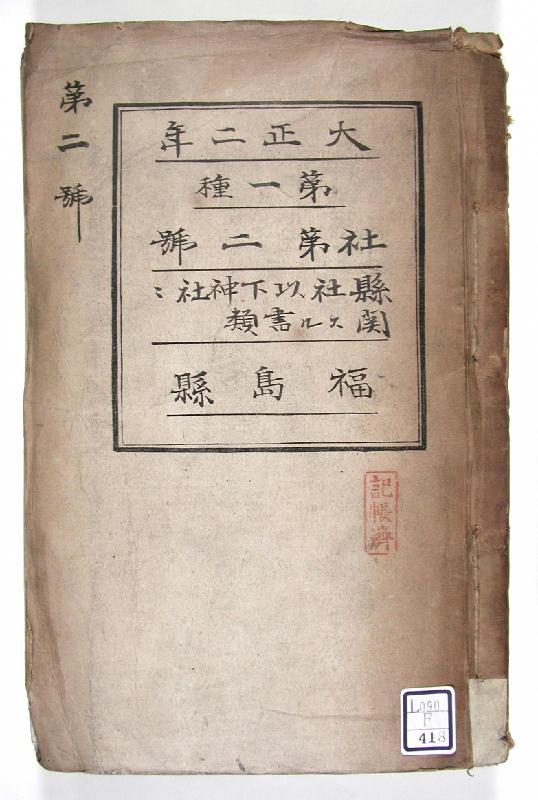 第二號
大正二年
第一種
社第二號
縣社以下神社ニ
関スル書類
福島縣
記帳濟
L090
F
418